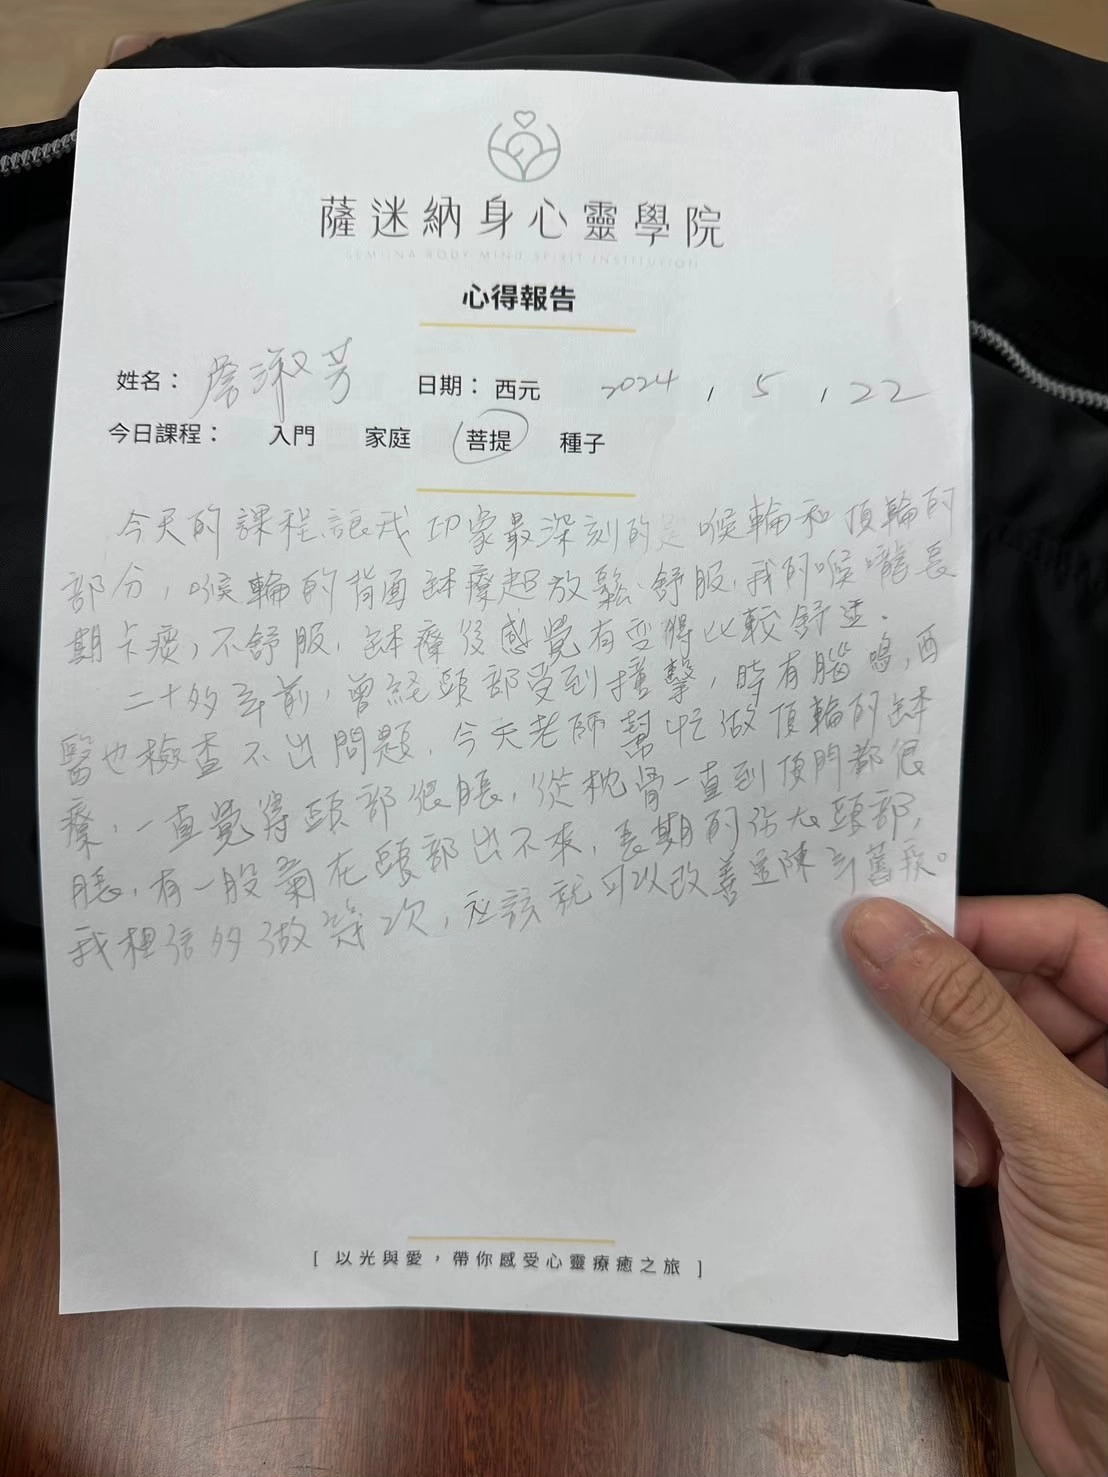 薩迷納身心靈學院
SEMONA BODY MIND SPIRIT INSTITUTION
心得報告
姓名： 詹淑芳 日期： 西元 2024 , 5 , 22
今日課程： 入門 家庭 菩提 種子
今天的課程讓我印象最深刻的是喉輪和頂輪的
部分，喉輪的背面缽療超放鬆、舒服，我的喉嚨長
期卡痰，不舒服，缽療後感覺有变得比較舒适。
二十多年前，曾經頭部受到撞擊，時有腦鳴，西
醫也檢查不出問題，今天老師幫忙做頂輪的缽
療，一直覺得頭部很脹，從枕骨一直到頂門都很
脹，有一股氣在頭部出不來，長期的活太頭部，
我相信多做幾次，應該就可以改善這陳年舊疾。
[ 以光與愛，帶你感受心靈療癒之旅 ]